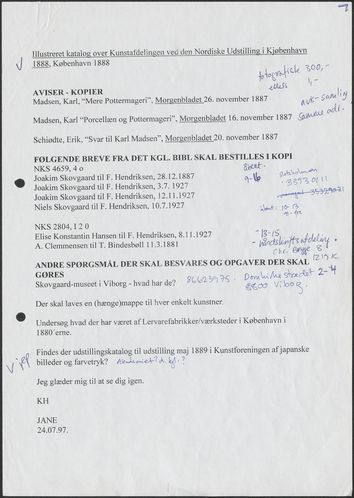 Illustreret katalog over Kunstafdelingen ved den Nordiske Udstilling i Kjøbenhavn
1888, København 1888
fotografisk 300,-
eller
1,-
AVISER - KOPIER
Madsen, Karl, "Mere Pottermageri", Morgenbladet 26. november 1887
avis-samling
Madsen, Karl "Porcellæn og Pottermageri", Morgenbladet 16. november 1887
samme
Schiødte, Erik, "Svar til Karl Madsen", Morgenbladet 20. november 1887
FØLGENDE BREVE FRA DET KGL. BIBL SKAL BESTILLES I KOPI
NKS 4659, 4 o
9-16
Joakim Skovgaard til F. Hendriksen, 28.12.1887
33930111
Joakim Skovgaard til F. Hendriksen, 3.7. 1927
Joakim Skovgaard til F. Hendriksen, 12.7. 1927
Niels Skovgaard til F. Hendriksen, 10.7.1927
10-13
NKS 2804, I 2 0
Elise Konstantin Hansen til F. Hendriksen, 8.11.1927
13-15
A. Clemmensen til T. Bindesbøll 11.3.1881
håndskriftsafdeling
Chr. Brygge 8
1219 K
ANDRE SPØRGSMÅL DER SKAL BESVARES OG OPGAVER DER SKAL
GØRES
Skovgaard-museet i Viborg - hvad har de?
86623975. Domkirkestrædet 2-4
8800 Viborg.
Der skal laves en (hænge)mappe til hver enkelt kunstner.
Undersøg hvad der har været af Lervarefabrikker/værksteder i København i
1880'erne.
Findes der udstillingskatalog til udstilling maj 1889 i Kunstforeningen af japanske
billeder og farvetryk?
Jeg glæder mig til at se dig igen.
KH
JANE
24.07.97.